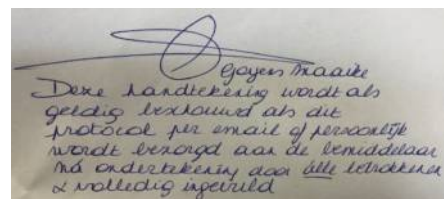 Goyens Maaike
Deze handtekening wordt als
geldig beschouwd als dit
protocol per email of persoonlijk
wordt bezorgd aan de bemiddelaar
na ondertekening door àlle betrokkenen
& volledig ingevuld